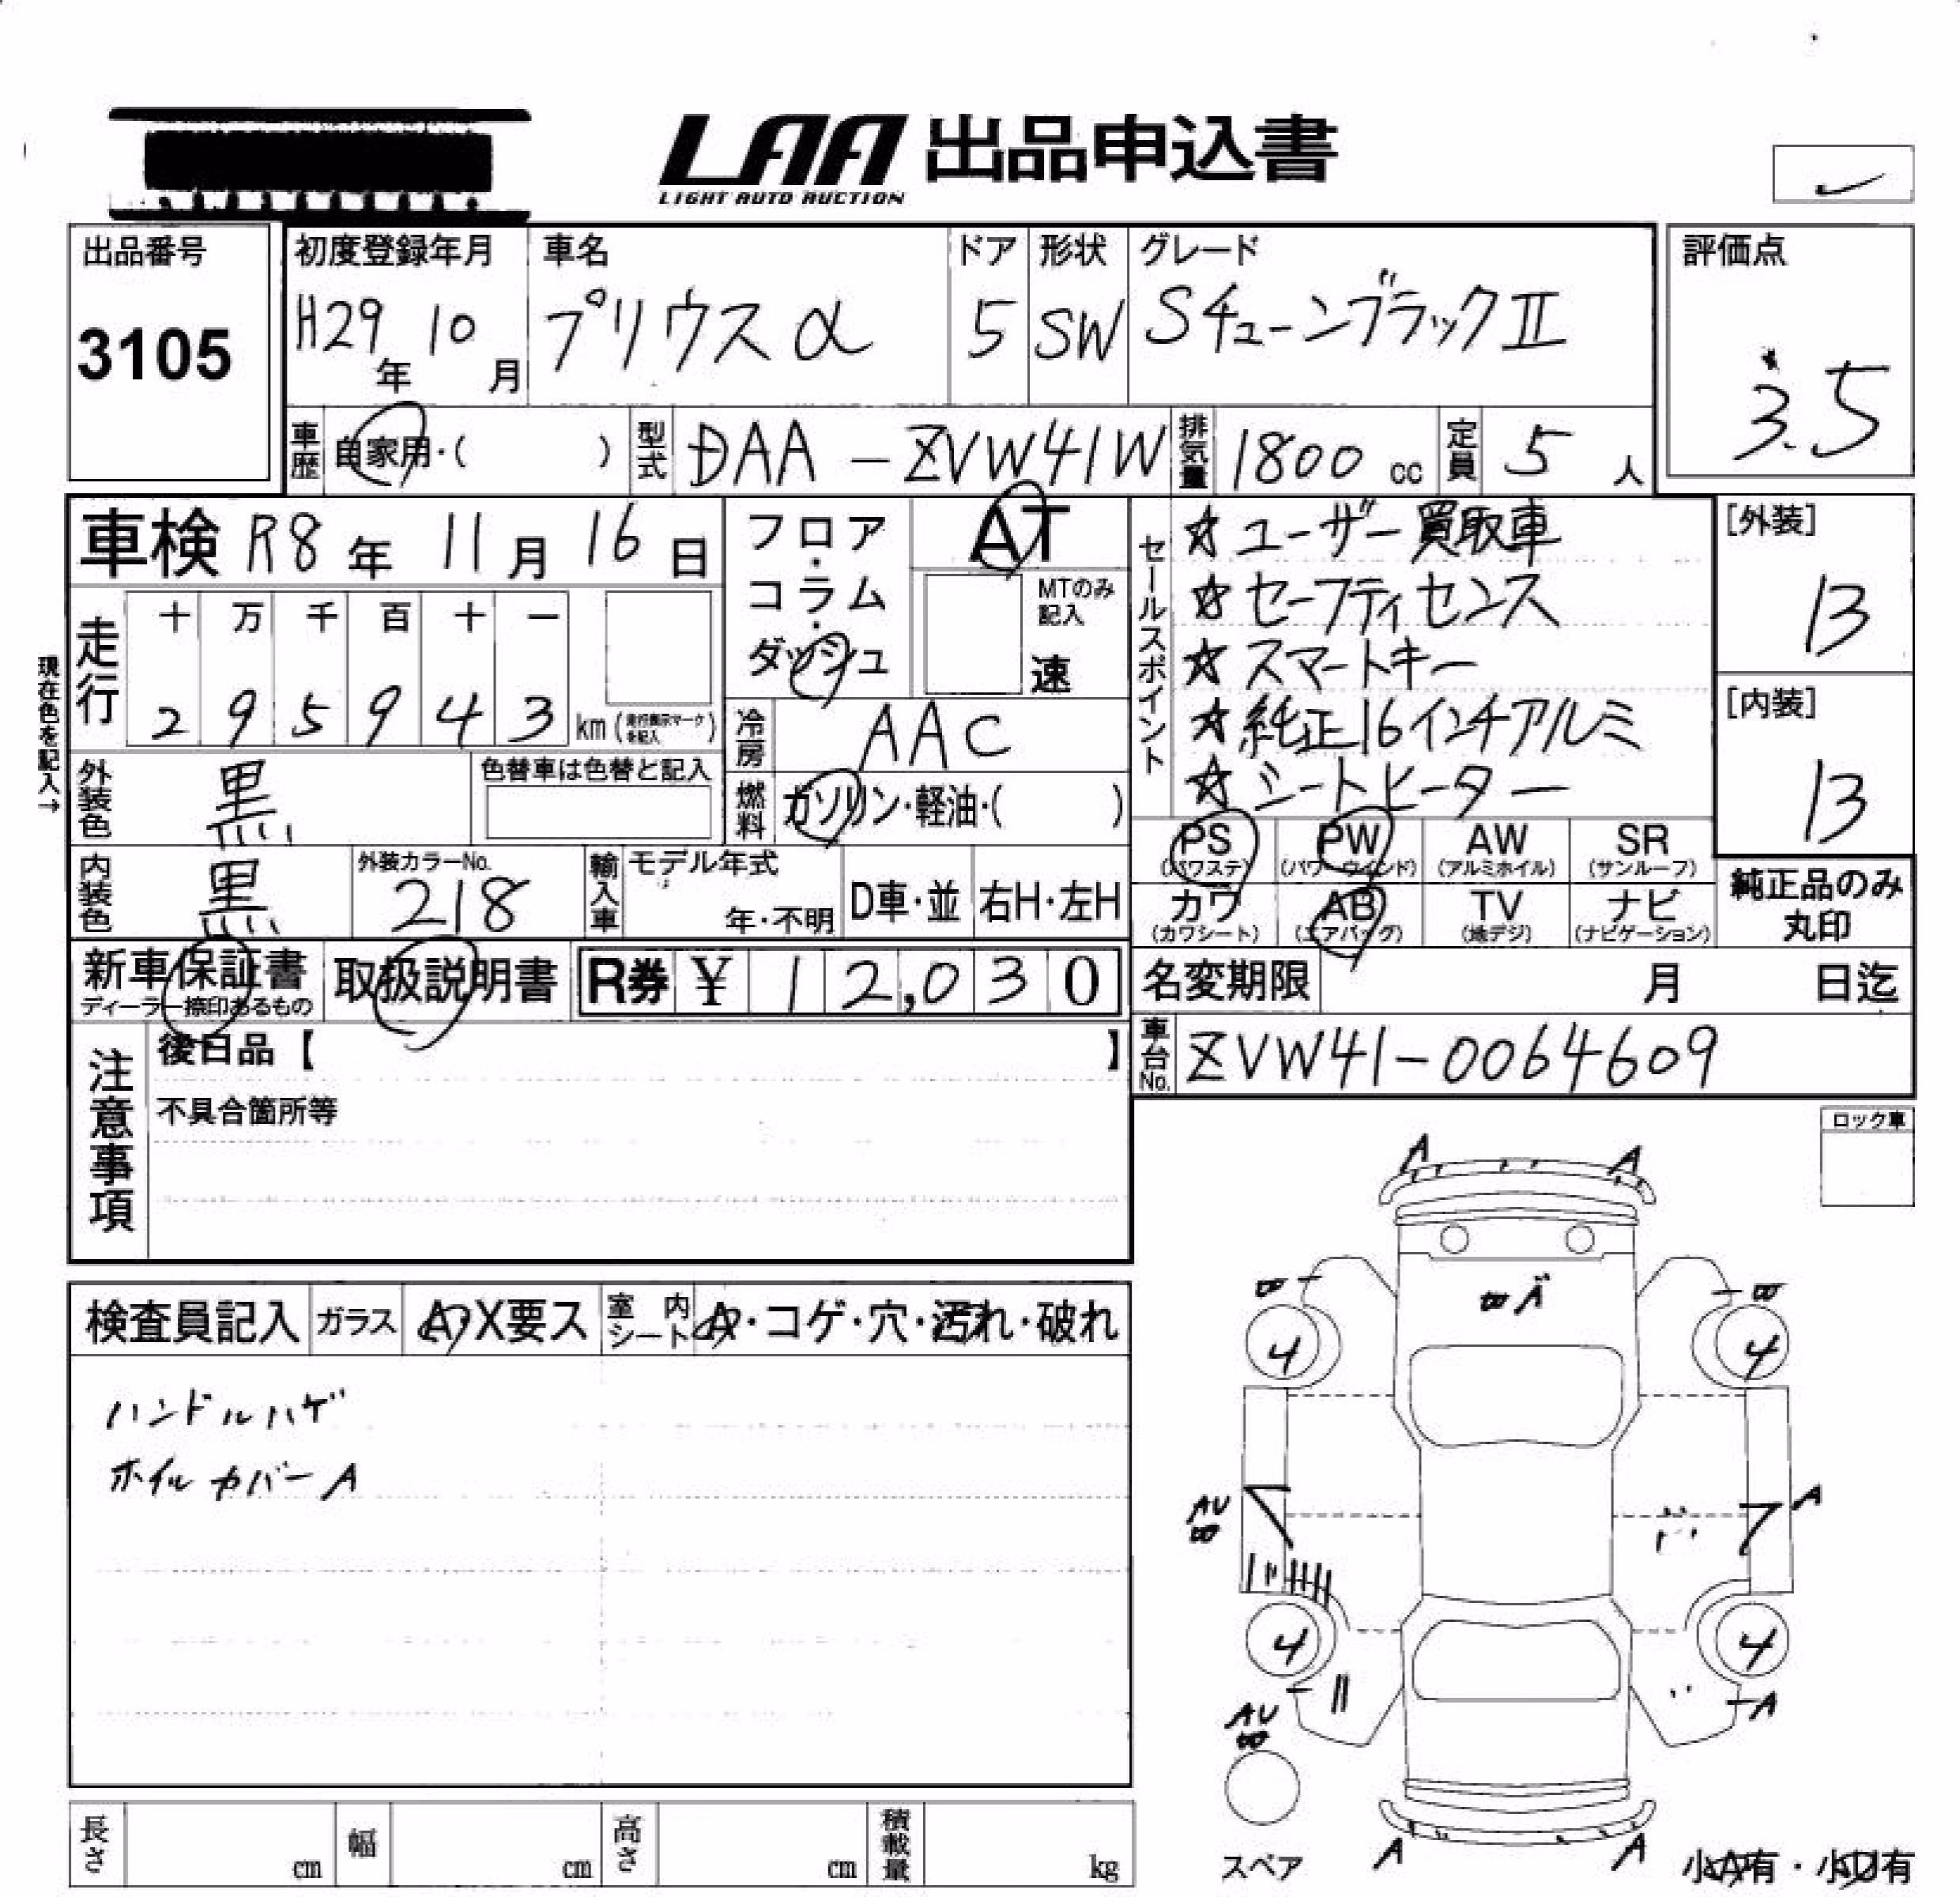 LAA 出品申込書
LIGHT AUTO AUCTION
出品番号
3105
初度登録年月
H29年 10月
車名
プリウスα
ドア
5
形状
SW
グレード
SチューンブラックⅡ
評価点
3.5
車歴 自家用・( )
型式 DAA-ZVW41W
排気量 1800 cc
定員 5 人
車検 R8年 11月 16日
現在色を記入→
走行
十 万 千 百 十 一
2 9 5 9 4 3 km
フロア・コラム・ダッシュ
AT
MTのみ記入
速
冷房 AAC
燃料 ガソリン・軽油・( )
外装色 黒
色替車は色替と記入
内装色 黒
外装カラーNo.
218
輸入車
モデル年式
年・不明
D車・並
右H・左H
セールスポイント
☆ユーザー買取車
☆セーフティセンス
☆スマートキー
☆純正16インチアルミ
☆シートヒーター
[外装]
13
[内装]
13
PS (パワステ)
PW (パワーウインド)
AW (アルミホイル)
SR (サンルーフ)
カワ (カワシート)
AB (エアバッグ)
TV (地デジ)
ナビ (ナビゲーション)
純正品のみ丸印
新車保証書
ディーラー捺印あるもの
取扱説明書
R券 ¥ 12,030
名変期限 月 日迄
車台No. ZVW41-0064609
注意事項
後日品【 】
不具合箇所等
ロック車
検査員記入
ガラス A・X要ス
室内シート A・コゲ・穴・汚れ・破れ
ハンドルハゲ
ホイルカバーA
A A
A
4 4
AU
A
4 4
AU
A
スペア
A A
小A有・小U有
長さ cm
幅 cm
高さ cm
積載量 kg